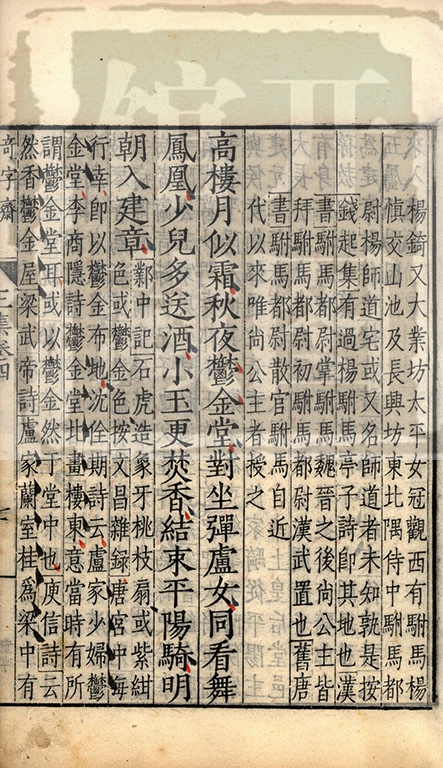 楊錡又大業坊太平女冠觀西有駙馬楊
慎交山池及長興坊東北隅侍中駙馬都
尉楊師道宅或又名師道者未知孰是按
錢起集有過楊駙馬亭子詩即其地也漢
書駙馬都尉掌駙馬魏晉之後尚公主皆
拜駙馬都尉初駙馬都尉漢武置也舊唐
書駙馬都尉散官駙馬自近
代以來唯尚公主者授之
高樓月似霜秋夜鬱金堂對坐彈盧女同看舞
鳳凰少兒多送酒小玉更焚香結束平陽騎明
朝入建章
鄴中記石虎造象牙桃枝扇或紫紺
色或鬱金色按文昌雜録唐宮中每
行幸即以鬱金布地沈佺期詩云盧家少婦鬱
金堂李商隱詩鬱金堂北畫樓東意當時有所
謂鬱金堂耳或以鬱金然于堂中也庾信詩云
然香鬱金屋梁武帝詩盧家蘭室桂爲梁中有
奇字齋
集卷四